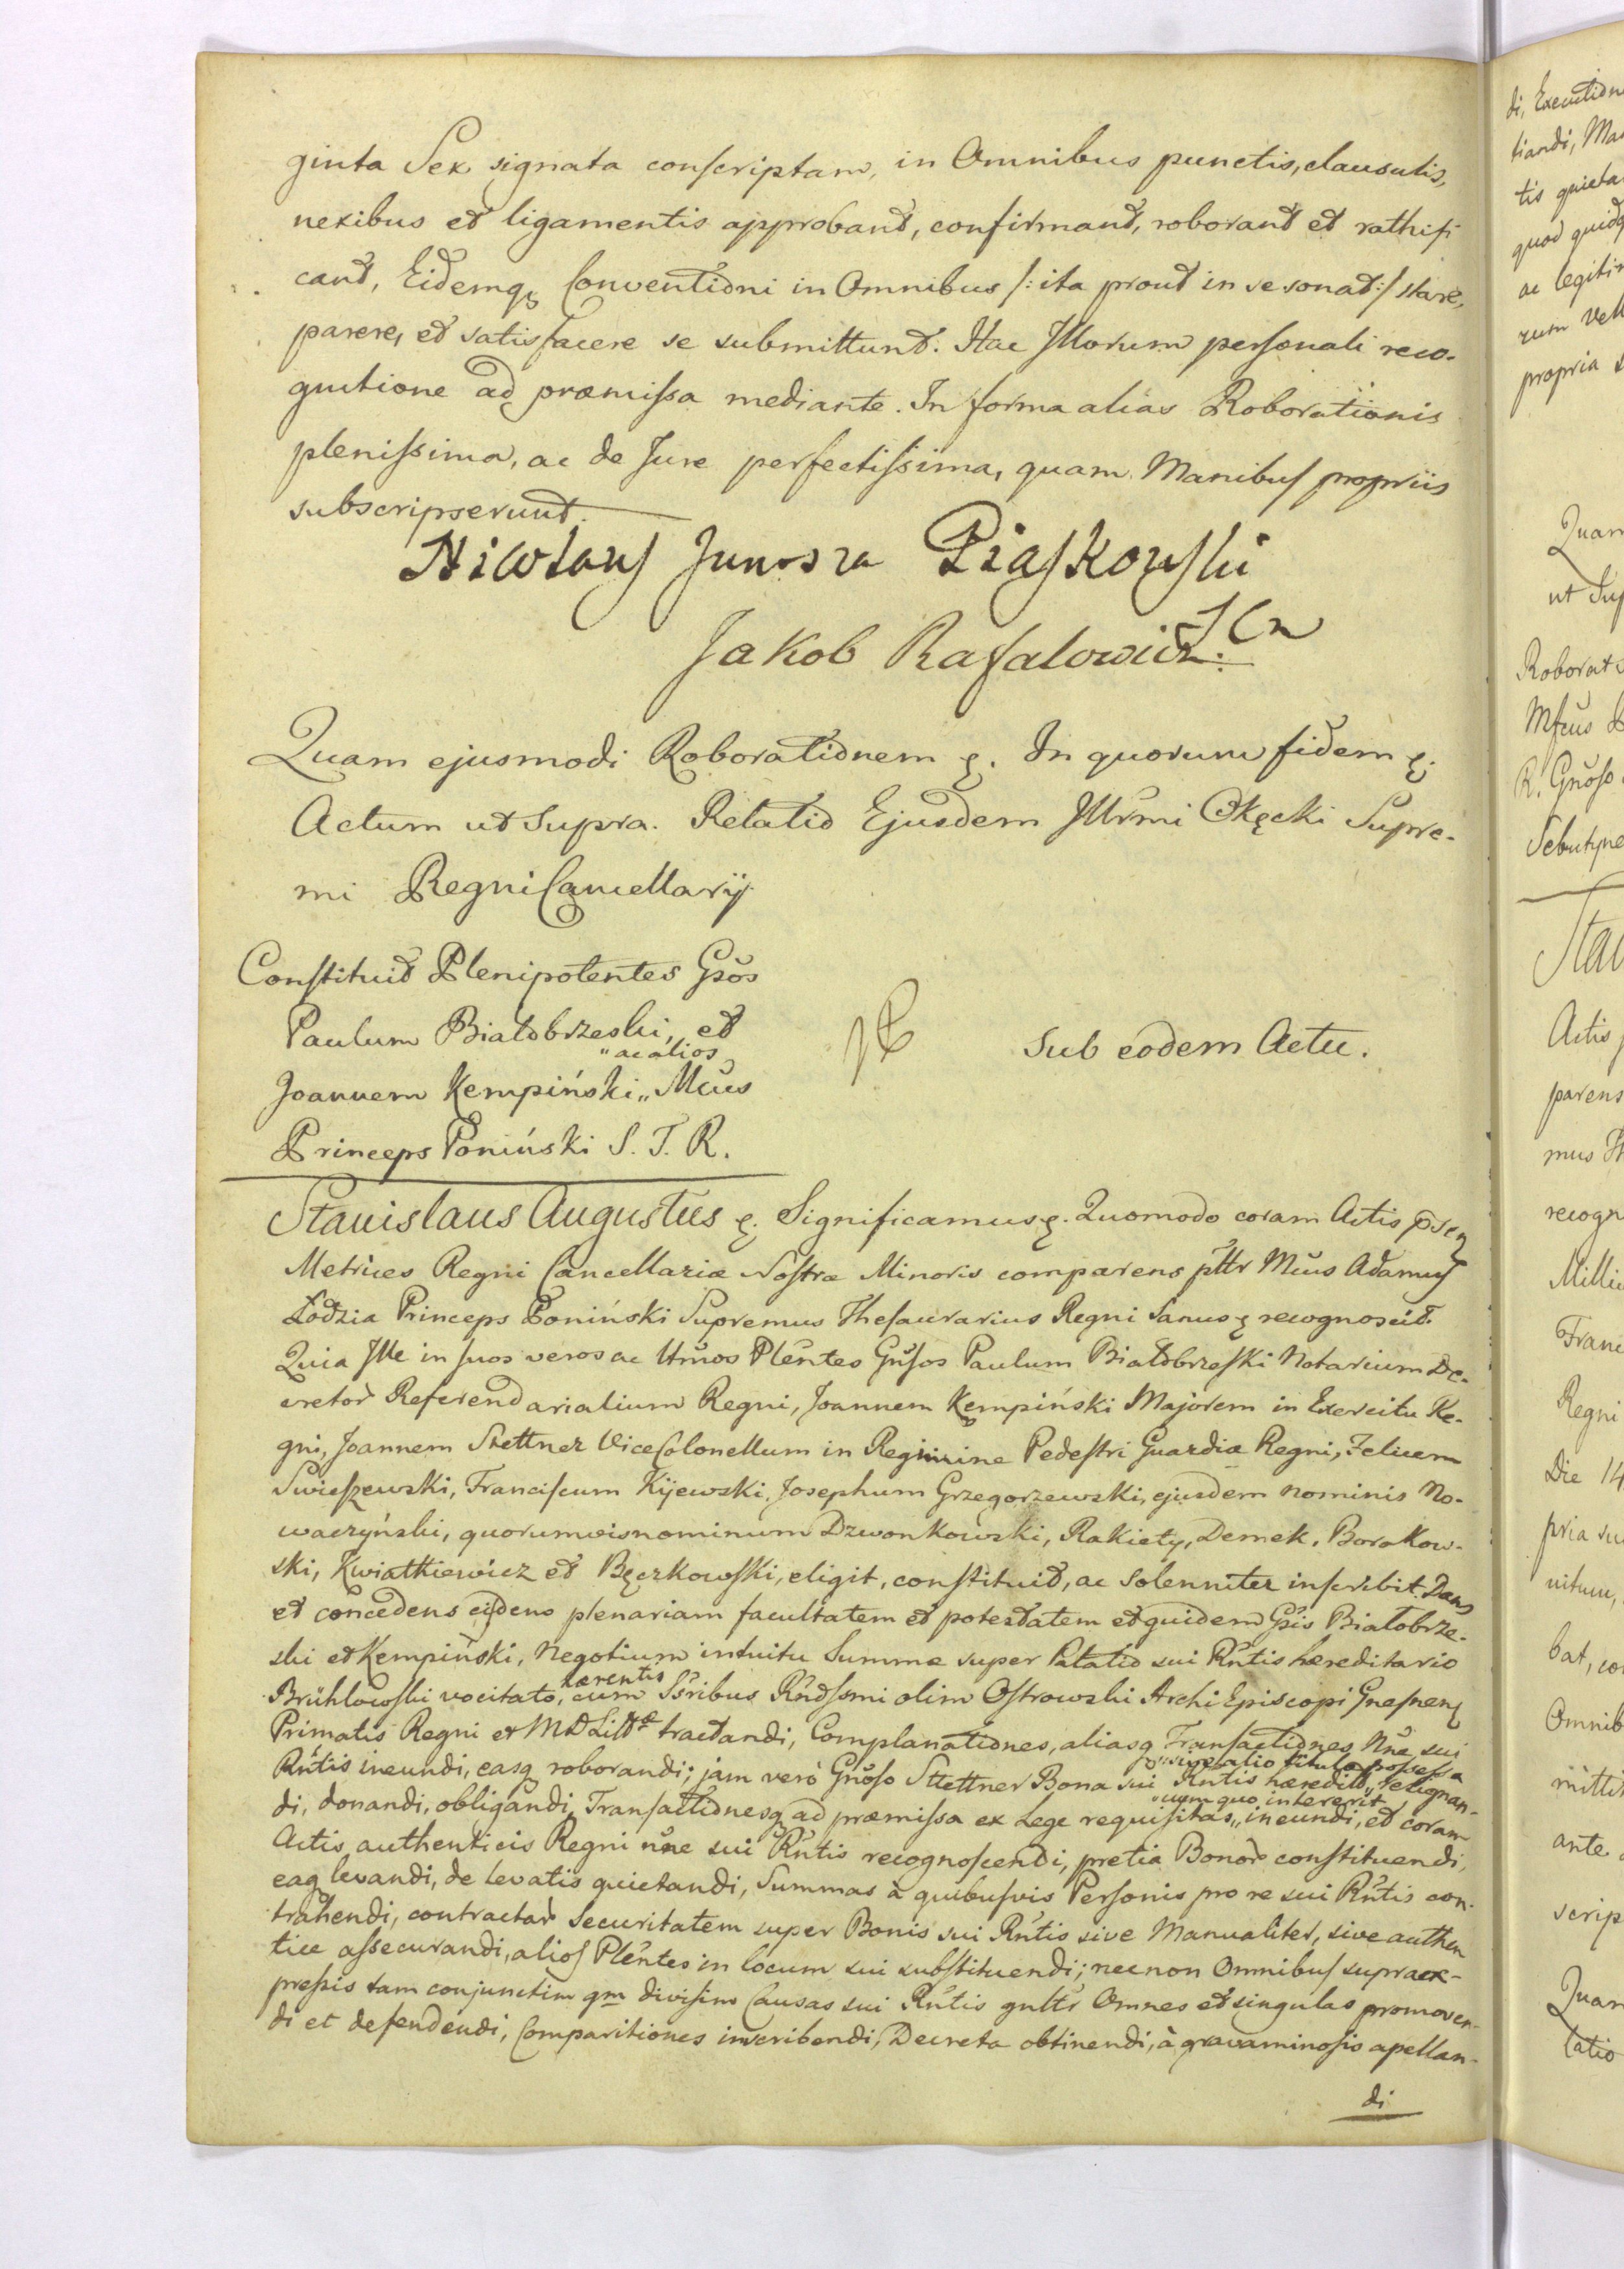 ginta Sex signata conscriptam, in Omnibus punctis, clausulis,
nexibus et ligamentis approbant, confirmant, roborant et rathifi
cant, Eidemq, Conventioni in Omnibus /: ita prout in se sonat :/ stare,
parere, et satisfacere se submittunt. Hac Illorum personali reco-
gnitione ad præmissa mediante. In forma alias Roborationis
plenissima, ac de Jure perfectissima, quam Manibus propriis
subscripserunt.
Nicolaus Junosza Piaskowski
Jakob Rafalowicz.
Quam ejusmodi Roborationem ę. In quorum fidem ę.
Actum ut Supra. Relatio Ejusdem Illrmi Okęcki Supre-
mi Regni Cancellarij
Constituit Plenipotentes Gsõs
Paulum Białobrzeski, et
„ac alios
Joannem Kempiński „ Mcũs
Princeps Poniński S. T. R.
Sub eodem Actu.
Stanislaus Augustus ę. Significamus ę. Quomodo coram Actis p̃sen
Metrices Regni Cancellariæ Nostræ Minoris comparens pttr Mcũs Adamus
Łodzia Princeps Poniński Supremus Thesaurarius Regni Sanus ę recognoscit.
Quia Ille in suos veros ac ltmõs Plẽntes Gñsos Paulum Białobrzeski Notarium De-
cretor̃ Referendarialium Regni, Joannem Kempiński Majorem in Exercitu Re-
gni, Joannem Stettner ViceColonellum in Regimine Pedestri Guardiæ Regni, Felicem
Swieszewski, Franciscum Kijewski, Josephum Grzegorzewski, ejusdem nominis No-
waczyński, quorumvis nominum Dzwonkowski, Rakiety, Demek, Borakow-
ski, Kwiatkiewicz et Bęczkowski, eligit, constituit, ac solenniter inscribit. Dans
et concedens eisdem plenariam facultatem et potestatem et quidem Gsis Białobrze-
ski et Kempiński, Negotium intuitu Summæ super Palatio sui Rñtis hæreditario
hærentis
Brühlowski vocitato, cum Ssribus Rñdssmi olim Ostrowski Archi Episcopi Gnesnen
Primatis Regni et M D Littæ tractandi, Complanationes, aliasq Transactiones Nñe sui
Rñtis ineundi, easq roborandi; jam verò Gnõso Stettner Bona sui Rñtis hæredit̃. resignan-
„sive alio titulo possessa
di, donandi, obligandi, Transactionesq ad præmissa ex Lege requisitas „ ineundi, et coram
„cum quo intererit
Actis authenticis Regni nñe sui Rñtis recognoscendi, pretia Bonor̃ constituendi,
eaq levandi, de levatis quietandi, Summas à quibusvis Personis pro re sui Rñtis con-
trahendi, contractar̃ securitatem super Bonis sui Rñtis sive Manualiter, sive authen
tice assecurandi, alios Plẽntes in locum sui substituendi; necnon Omnibus supraex-
pressis tam conjunctim qm divisim Causas sui Rñtis gnltr̃ Omnes et singulas promoven-
di et defendendi, Comparitiones inscribendi, Decreta obtinendi, à gravaminosis apellan-
di
di, Execution
tiandi, Man
tis quieta
quod quidq
ac legitim
propria s
Quam
ut Sup
Roborat
R. Gnõso
Actis
parens
mus
recogn
Regni
Die 14
pria su
bat, co
Omnib
mittit
ante
scrip
Quam
latio